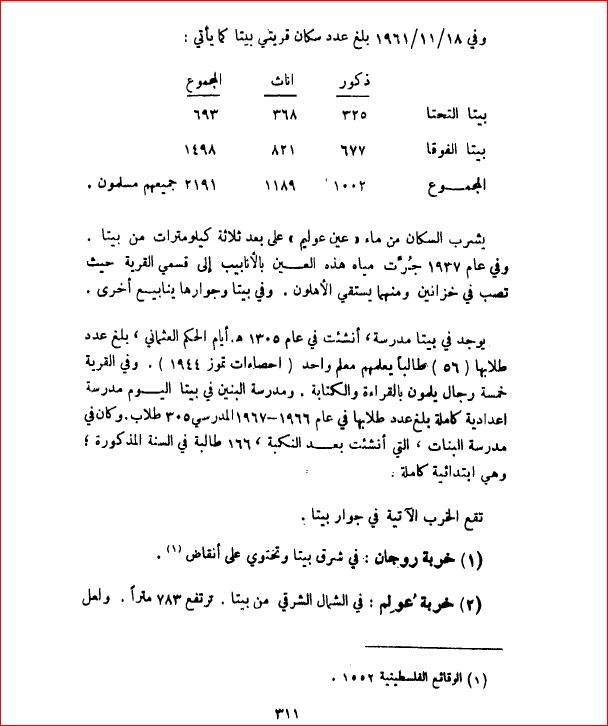 وفي ١٩٦١/١١/١٨ بلغ عدد سكان قريتي بيتا كما يأتي :
ذكور اناث المجموع
بيتا التحتا ٣٢٥ ٣٦٨ ٦٩٣
بيتا الفوقا ٦٧٧ ٨٢١ ١٤٩٨
المجمـــوع ١٠٠٢ ١١٨٩ ٢١٩١ جميعهم مسلمون .
يشرب السكان من ماء « عين عوليم » على بعد ثلاثة كيلومترات من بيتا .
وفي عام ١٩٣٧ جُرَّت مياه هذه العـــين بالأنابيب إلى قسمي القرية حيث
تصب في خزانين ومنهما يستقي الأهلون . وفي بيتا وجوارها ينابيع أخرى .
يوجد في بيتا مدرسة ، أنشئت في عام ١٣٠٥ ه‍. أيام الحكم العثماني ، بلغ عدد
طلابها ( ٥٦ ) طالباً يعلمهم معلم واحد ( احصاءات تموز ١٩٤٤ ) . وفي القرية
خمسة رجال يلمون بالقراءة والكتابة . ومدرسة البنين في بيتا اليـــوم مدرسة
اعدادية كاملة بلغ عدد طلابها في عام ١٩٦٦–١٩٦٧ المدرسي ٣٠٥ طلاب . وكان في
مدرسة البنات ، التي أنشئت بعـــد النكبة ، ١٦٦ طالبة في السنة المذكورة ؛
وهي ابتدائية كاملة .
تقع الخرب الآتية في جوار بيتا .
(١) خربة روجان : في شرق بيتا وتحتوي على أنقاض (١) .
(٢) خربة عُولِم : في الشمال الشرقي من بيتا . ترتفع ٧٨٣ متراً . ولعل
(١) الوقائع الفلسطينية ١٥٥٢ .
٣١١